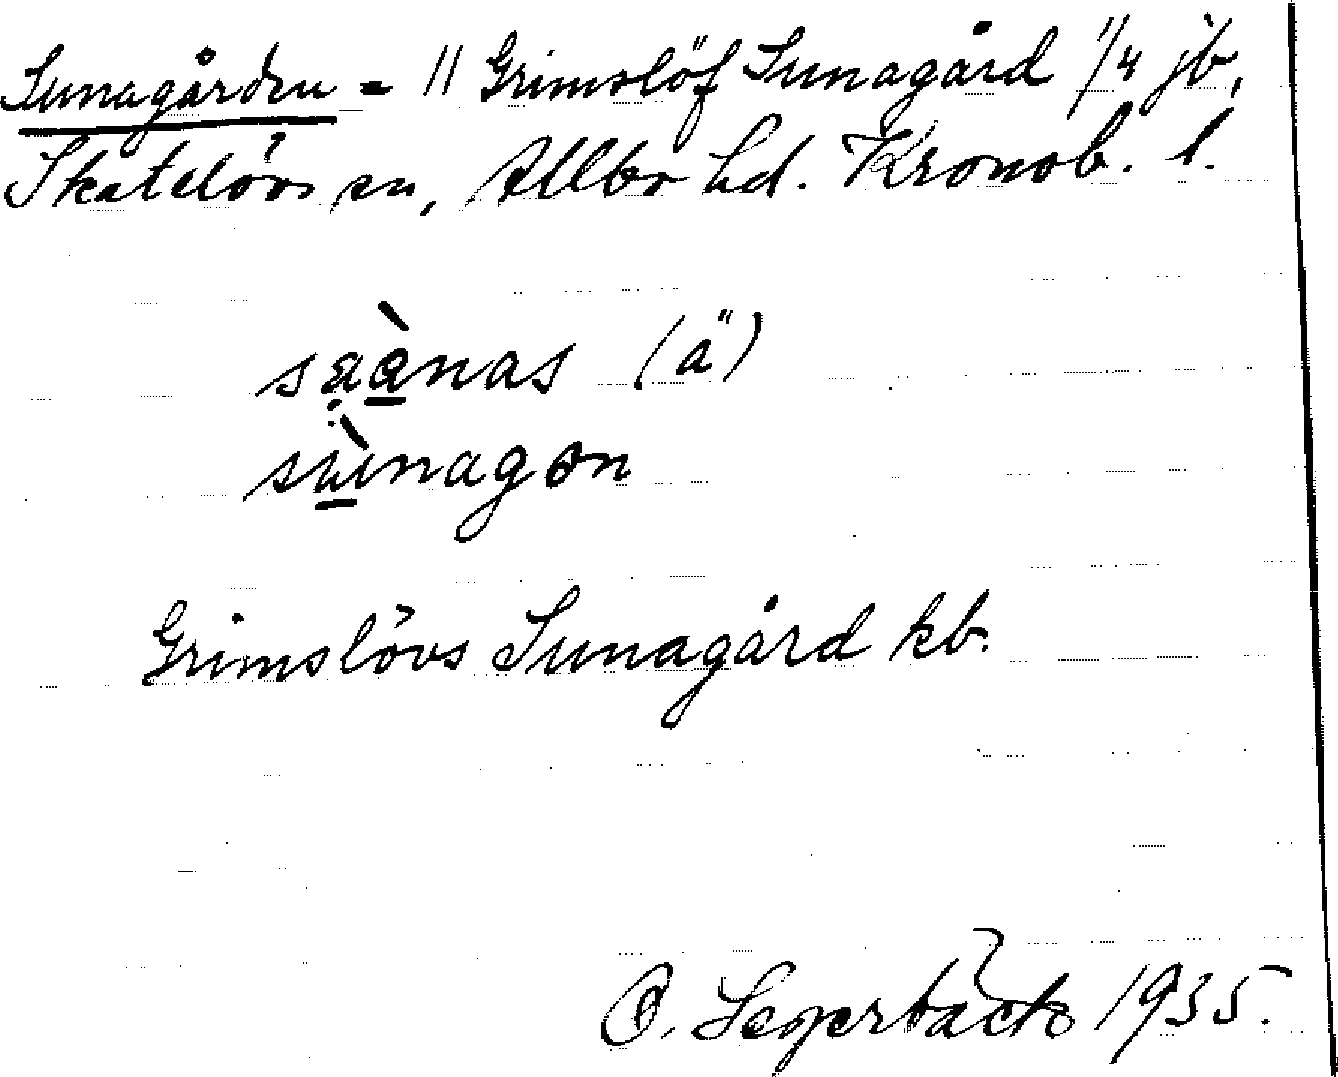 Sunagården = 11 Grimslöf Sunagård 1/4 jb,
Skatelövs sn, Allbo hd. Kronob. l.
sạà̱nas (ä)
sù̱nagɷn
Grimslövs Sunagård kb.
O. Segerbäck 1935.